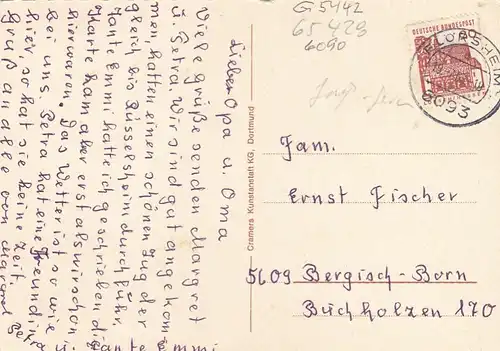 Lieber Opa u. Oma
Viele grüße senden Margret
u. Petra. Wir sind gut angekom
men, hatten einen schönen Zug der
gleich bis Rüsselsheim durchfuhr.
Tante Emmi hatte ich geschrieben die
Karte kam aber erst als wir schon
hier waren. Das Wetter ist so wie
bei uns. Petra hat eine Freundin
hier, so hat sie keine Zeit.
Gruß an alle von Margret Petra
Tante Emmi
Cramers Kunstanstalt KG, Dortmund
G 5442
65 429
6090
DEUTSCHE BUNDESPOST
FLÖRSHEIM
6093
Fam.
Ernst Fischer
5609 Bergisch-Born
Buchholzen 170